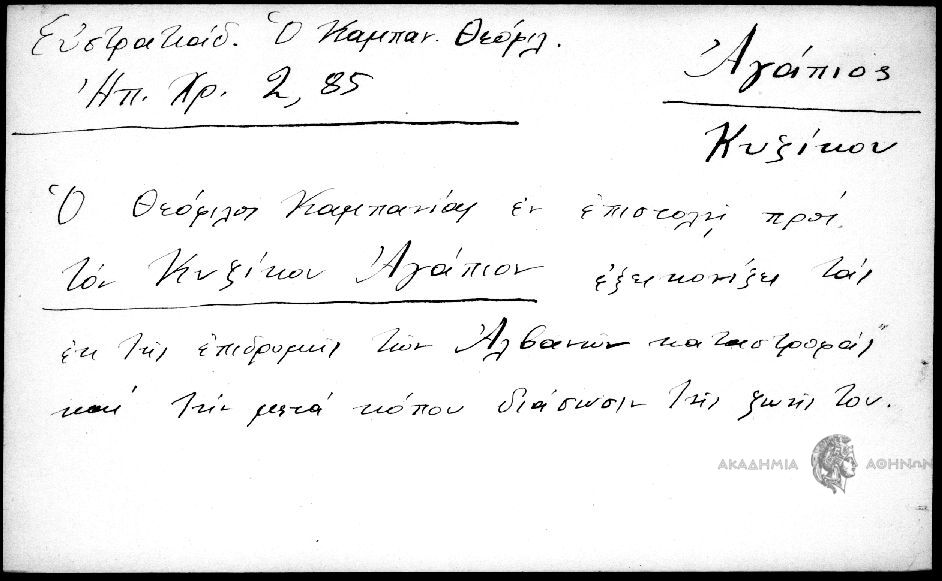 Εὐστρατιάδ. Ὁ Καμπαν. Θεόφιλ.
Ἠπ. Χρ. 2, 85
Ἀγάπιος
Κυζίκου
Ὁ Θεόφιλος Καμπανίας ἐν ἐπιστολῇ πρός
τόν Κυζίκου Ἀγάπιον ἐξεικονίζει τάς
ἐκ τῆς ἐπιδρομῆς τῶν Ἀλβανῶν καταστροφάς"
καί τήν μετά κόπου διάσωσιν τῆς ζωῆς του.
ΑΚΑΔΗΜΙΑ ΑΘΗΝΩΝ